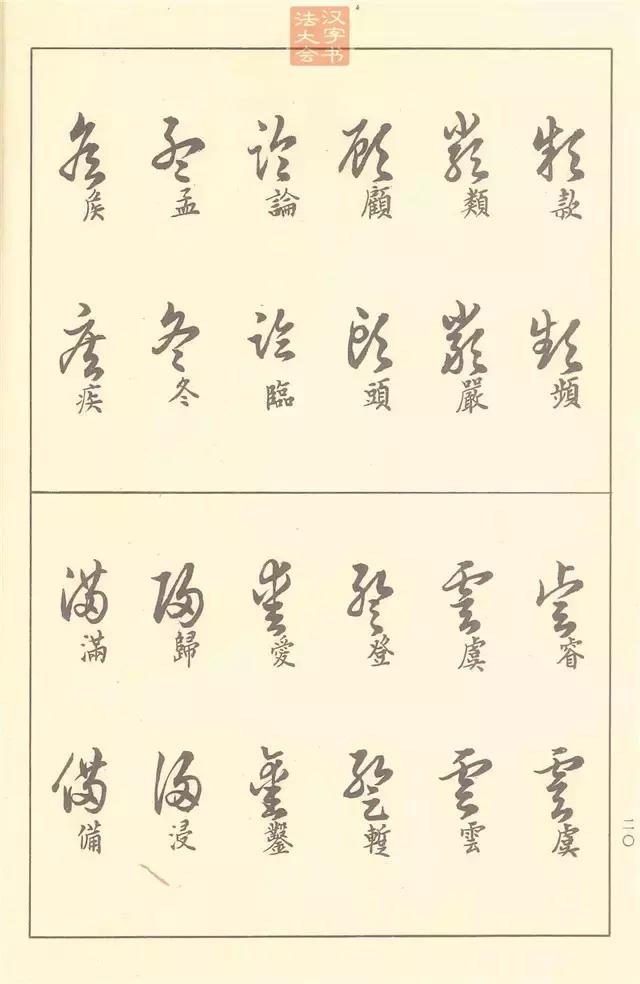 汉字书
法大会
款
頻
類
嚴
顧
頭
論
臨
孟
冬
疾
睿
虞
虞
雲
登
愛
鑿
歸
浸
滿
備
二〇